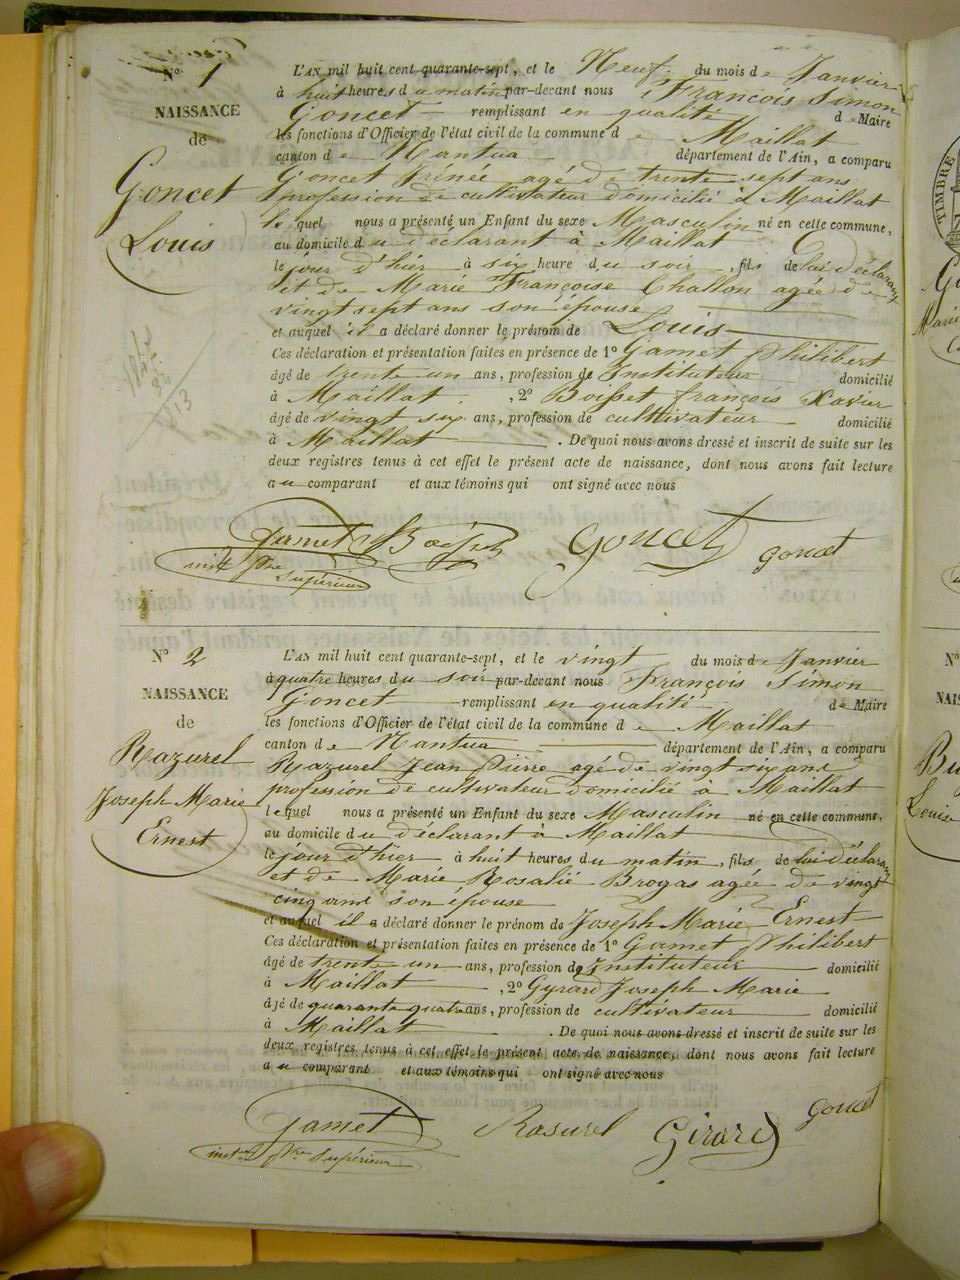 N° 1
NAISSANCE
de
Goncet
Louis
L'AN mil huit cent quarante-sept, et le Neuf du mois de Janvier
à huit heures du matin par-devant nous François Simon
Goncet remplissant en qualité de Maire
les fonctions d'Officier de l'état civil de la commune de Maillat
canton de Nantua département de l'Ain, a comparu
Goncet Irénée agé de trente sept ans
profession de cultivateur domicilié à Maillat
le quel nous a présenté un Enfant du sexe Masculin né en cette commune,
au domicile du déclarant à Maillat
le jour d'hier à six heure du soir, fils de lui déclarant
et de Marie Françoise Challon agée de
vingt sept ans son épouse
et auquel il a déclaré donner le prénom de Louis
Ces déclaration et présentation faites en présence de 1° Gamet Philibert
âgé de trente un ans, profession de Instituteur domicilié
à Maillat, 2° Boisset françois Xavier
âgé de vingt six ans, profession de cultivateur domicilié
à Maillat. De quoi nous avons dressé et inscrit de suite sur les
deux registres tenus à cet effet le présent acte de naissance, dont nous avons fait lecture
au comparant et aux témoins qui ont signé avec nous
Gamet Goncet goncet
supérieur
N° 2
NAISSANCE
de
Razurel
Joseph Marie
Ernest
L'AN mil huit cent quarante-sept, et le vingt du mois de Janvier
à quatre heures du soir par-devant nous François Simon
Goncet remplissant en qualité de Maire
les fonctions d'Officier de l'état civil de la commune de Maillat
canton de Nantua département de l'Ain, a comparu
Razurel Jean Pierre agé de vingt six ans
profession de cultivateur domicilié à Maillat
lequel nous a présenté un Enfant du sexe Masculin né en cette commune,
au domicile du déclarant à Maillat
le jour d'hier à huit heures du matin, fils de lui déclarant
et de Marie Rosalie Brogas agée de vingt
cinq ans son épouse
et auquel il a déclaré donner le prénom de Joseph Marie Ernest
Ces déclaration et présentation faites en présence de 1° Gamet Philibert
âgé de trente un ans, profession de Instituteur domicilié
à Maillat, 2° Gyrard Joseph Marie
âgé de quarante quatre ans, profession de cultivateur domicilié
à Maillat. De quoi nous avons dressé et inscrit de suite sur les
deux registres tenus à cet effet le présent acte de naissance, dont nous avons fait lecture
au comparant et aux témoins qui ont signé avec nous
Gamet Rasurel Girard goncet
supérieur
TIMBRE